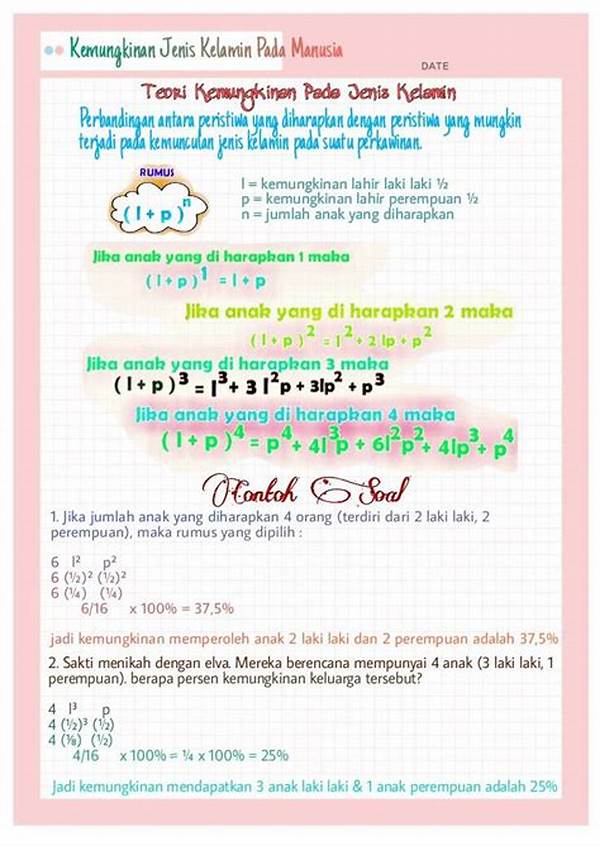 Kemungkinan Jenis Kelamin Pada Manusia
DATE
Teori Kemungkinan Pada Jenis Kelamin
Perbandingan antara peristiwa yang diharapkan dengan peristiwa yang mungkin
terjadi pada kemunculan jenis kelamin pada suatu perkawinan.
RUMUS
(l + p)ⁿ
l = kemungkinan lahir laki laki ½
p = kemungkinan lahir perempuan ½
n = jumlah anak yang diharapkan
Jika anak yang di harapkan 1 maka
(l + p)¹ = l + p
Jika anak yang di harapkan 2 maka
(l + p)² = l² + 2 lp + p²
Jika anak yang di harapkan 3 maka
(l + p)³ = l³ + 3 l²p + 3lp² + p³
Jika anak yang di harapkan 4 maka
(l + p)⁴ = p⁴ + 4l³p + 6l²p² + 4lp³ + p⁴
Contoh Soal
1. Jika jumlah anak yang diharapkan 4 orang (terdiri dari 2 laki laki, 2
perempuan), maka rumus yang dipilih :
6 l² p²
6 (½)² (½)²
6 (¼) (¼)
6/16 x 100% = 37,5%
jadi kemungkinan memperoleh anak 2 laki laki dan 2 perempuan adalah 37,5%
2. Sakti menikah dengan elva. Mereka berencana mempunyai 4 anak (3 laki laki, 1
perempuan). berapa persen kemungkinan keluarga tersebut?
4 l³ p
4 (½)³ (½)
4 (⅛) (½)
4/16 x 100% = ¼ x 100% = 25%
Jadi kemungkinan mendapatkan 3 anak laki laki & 1 anak perempuan adalah 25%